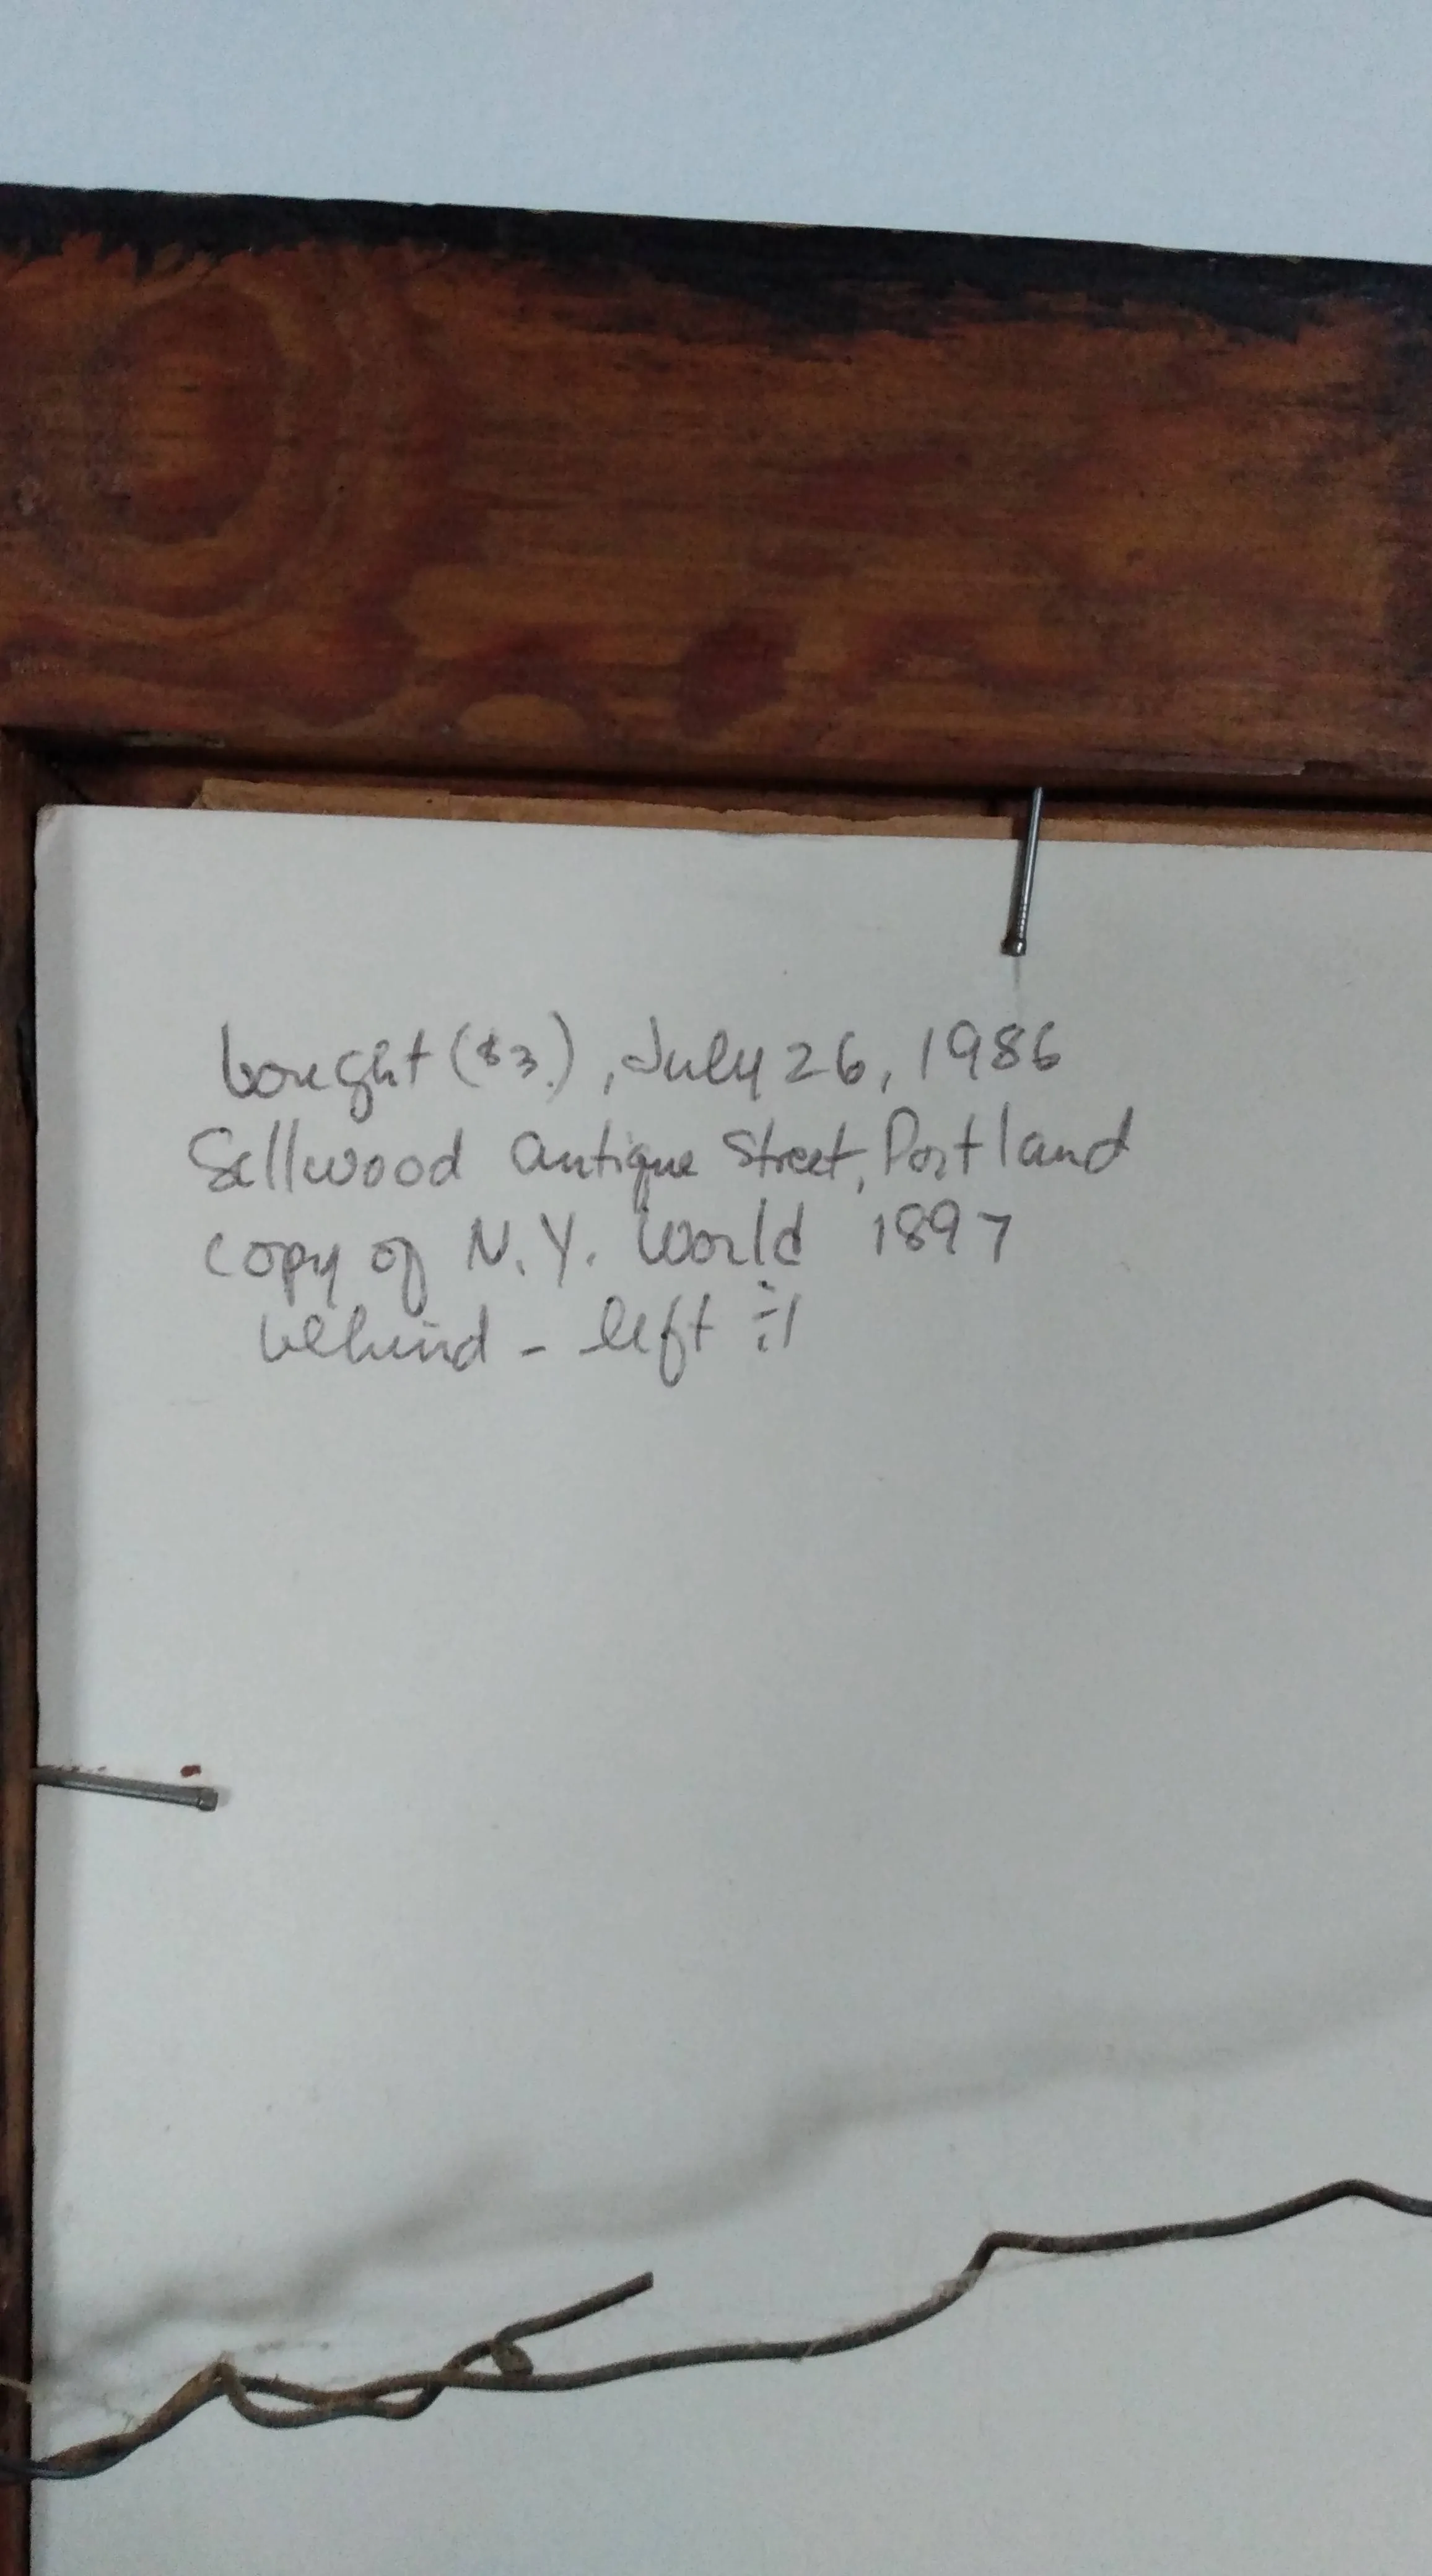 bought ($3.), July 26, 1986
Sellwood Antique Street, Portland
copy of N.Y. World 1897
behind - left it